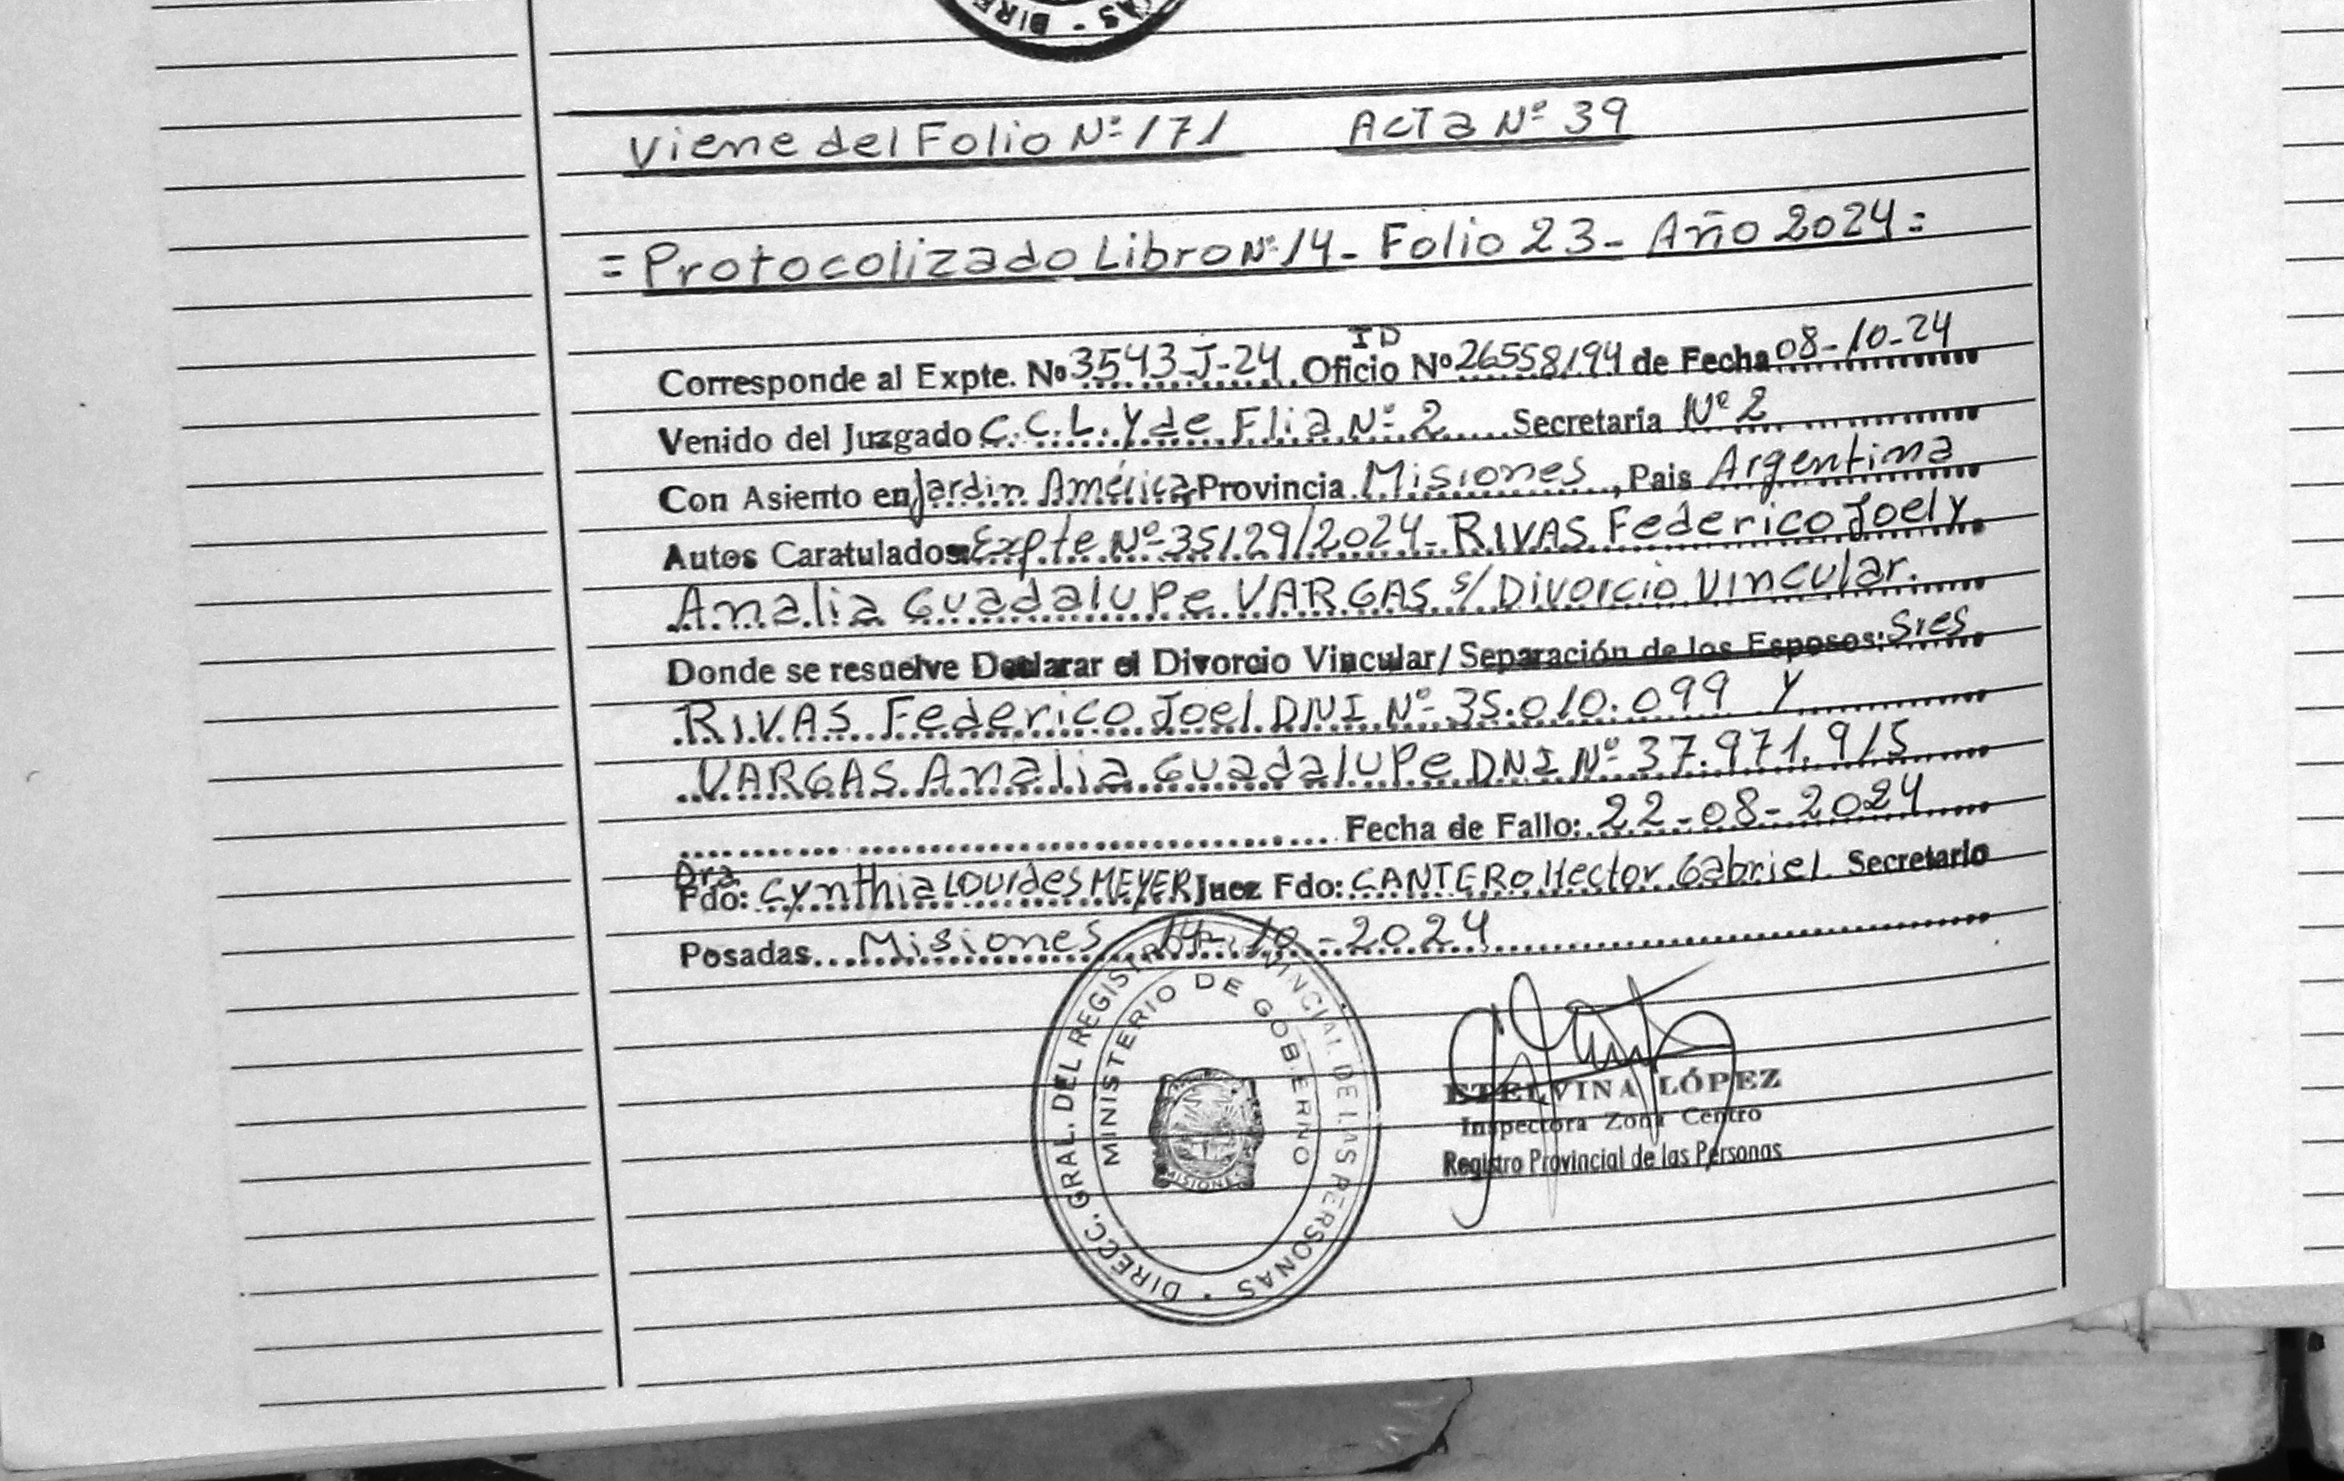 Viene del Folio Nº 171 Acta Nº 39
= Protocolizado Libro Nº 14 - Folio 23 - Año 2024 =
ID
Corresponde al Expte. Nº 3543-J-24 Oficio Nº 26558194 de Fecha 08-10-24
Venido del Juzgado C.C.L. Y de Flia Nº 2 Secretaría Nº 2
Con Asiento en Jardin América, Provincia Misiones, Pais Argentina
Autos Caratulados: Expte Nº 35129/2024 - RIVAS Federico Joel y
Analia Guadalupe VARGAS s/ Divorcio Vincular.
Donde se resuelve Declarar el Divorcio Vincular/ Separación de los Esposos: Sres
RIVAS Federico Joel DNI Nº 35.010.099 Y
VARGAS Analia Guadalupe DNI Nº 37.971.915
Fecha de Fallo: 22-08-2024
Dra
Fdo: Cynthia Lourdes MEYER Juez Fdo: CANTERO Hector Gabriel Secretario
Posadas Misiones 14-10-2024
DIRECC. GRAL. DEL REGISTRO PROVINCIAL DE LAS PERSONAS
MINISTERIO DE GOBIERNO
MISIONES
ETELVINA LÓPEZ
Inspectora Zona Centro
Registro Provincial de las Personas